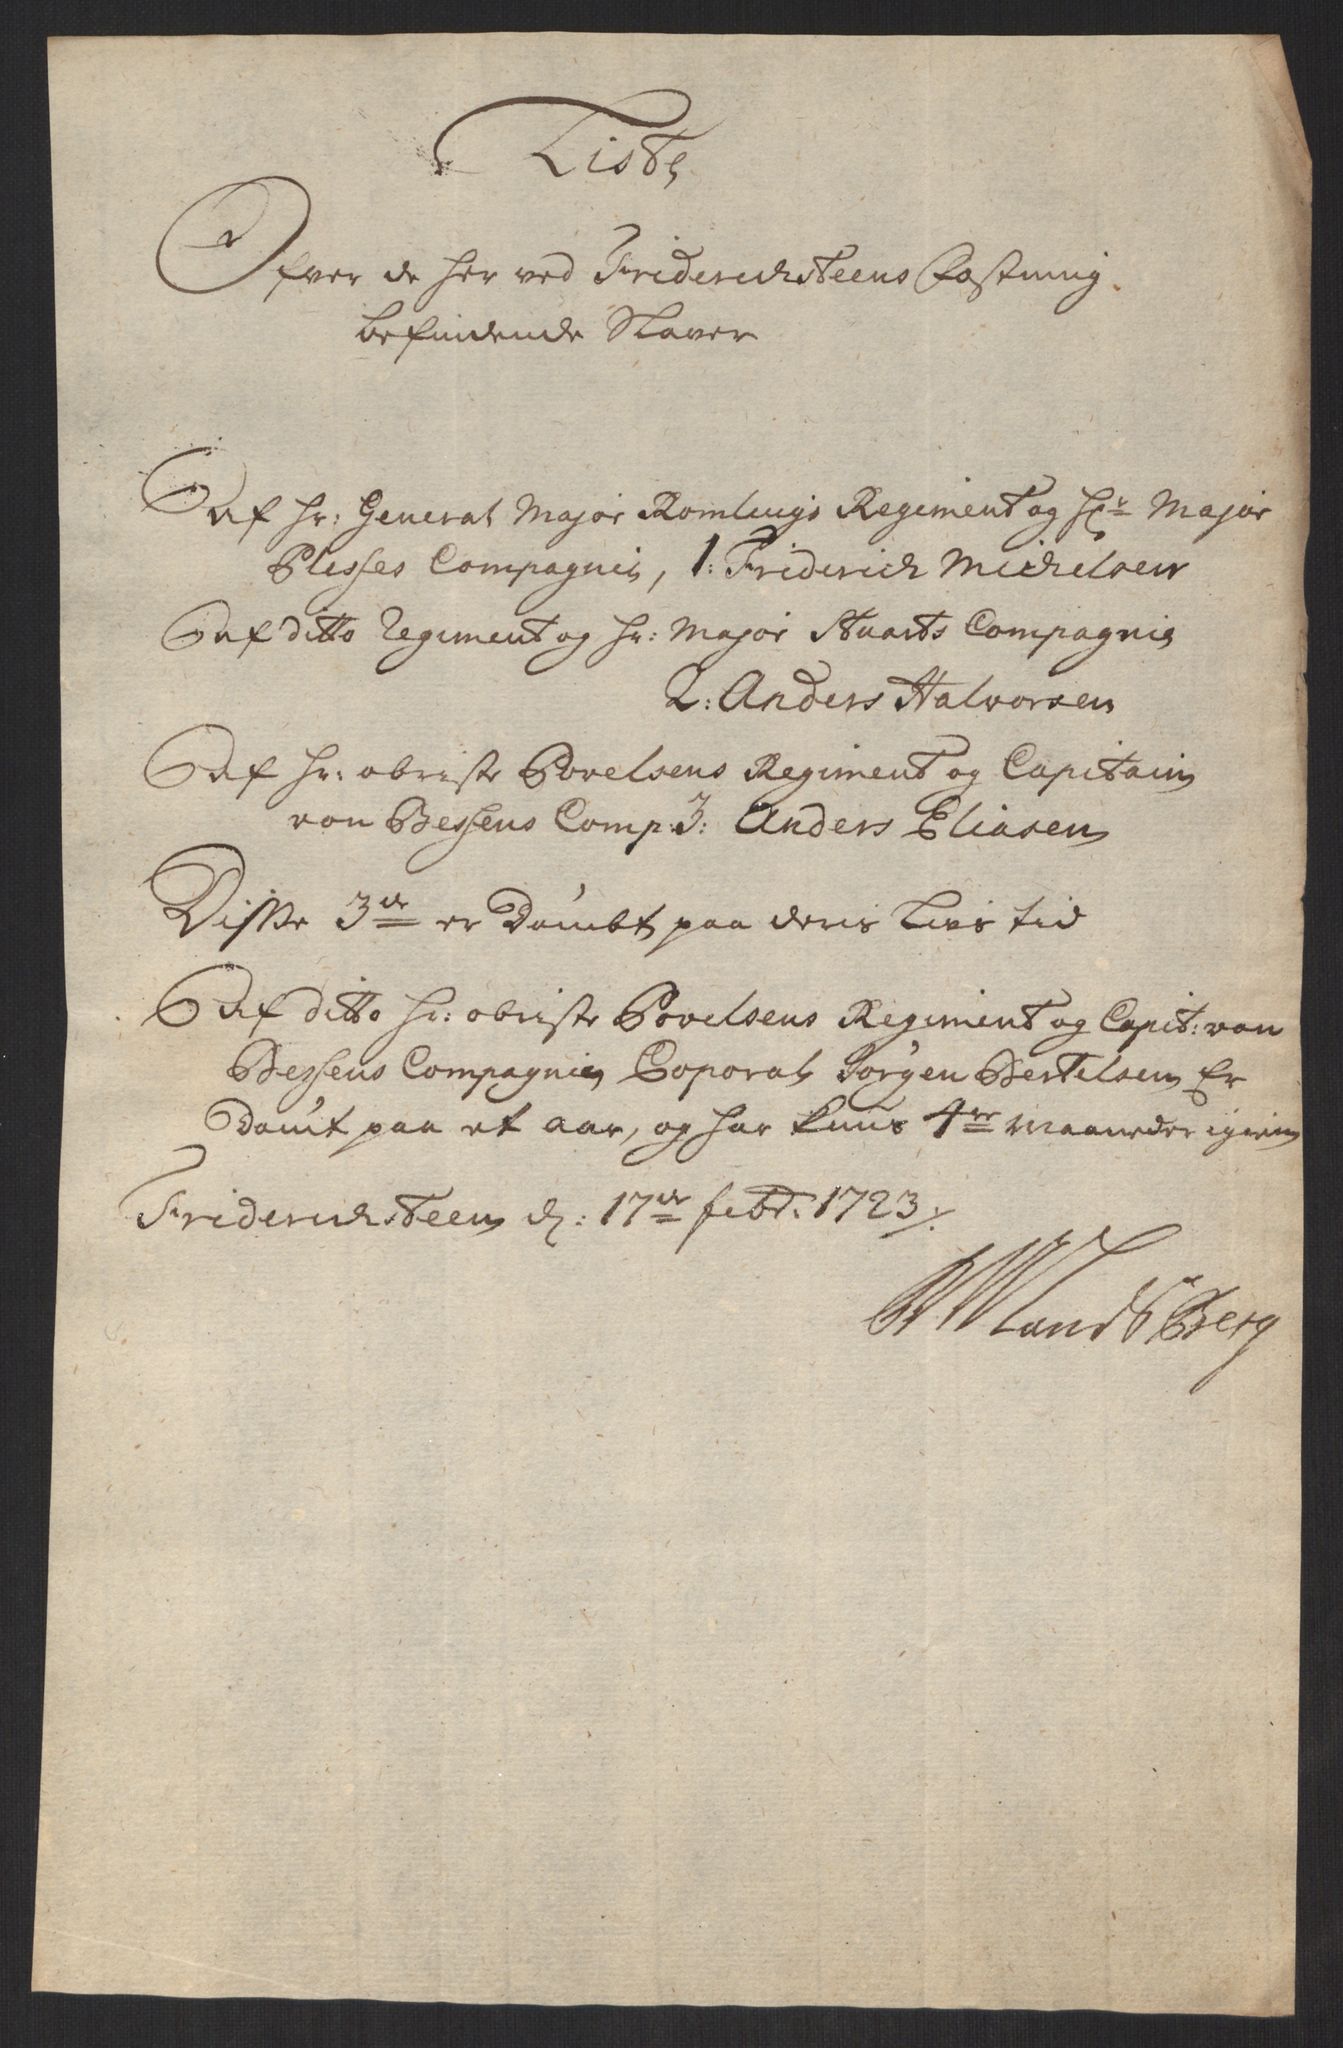 Liste
Ofver de her ved Friderichsteens Fæstning
befindende Slaver
Af Hr: General Major Romlings Regiment og Hr Major
Plesses Compagnie, 1: Friderich Michelsen
Af ditto Regiment og Hr: Major Stuarts Compagnie
2: Anders Halvorsen
Af Hr: obriste Povelsens Regiment og Capitain
von Bessens Comp: 3: Anders Eliasen
Disse 3de er Dömbt paa deris Livs tid
Af ditto Hr: obriste Povelsens Regiment og Capit: von
Bessens Compagnie Coporal Jörgen Bertelsen Er
Dömt paa et aar, og har kuns 4re Maaneder igien
Friderichsteen d: 17de febr: 1723
Landsberg